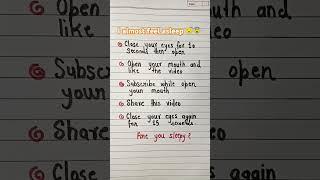 I almost feel asleep
Close your eyes for 10
seconds then open
Open your mouth and
like the video
Subscribe while open
your mouth
Share this video
Close your eyes again
for 15 seconds
Are you sleepy?